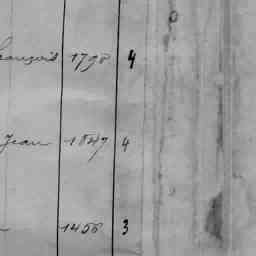 François 1798 4
Jean 1847 4
1456 3